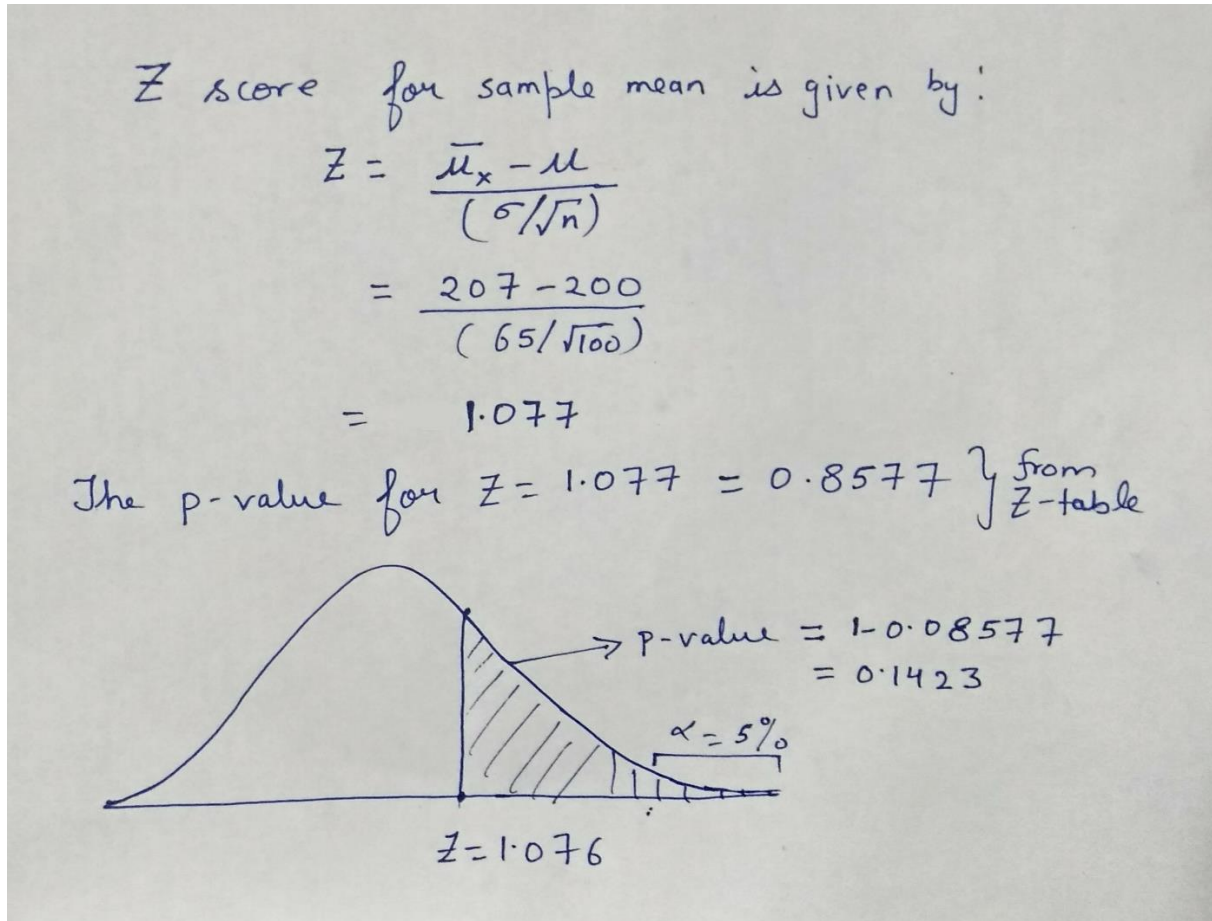 Z score for sample mean is given by:
Z = μ̄ₓ - μ
(σ/√n)
= 207 - 200
(65/√100)
= 1.077
The p-value for Z = 1.077 = 0.8577 } from Z-table
p-value = 1-0.08577
= 0.1423
α = 5%
Z=1.076